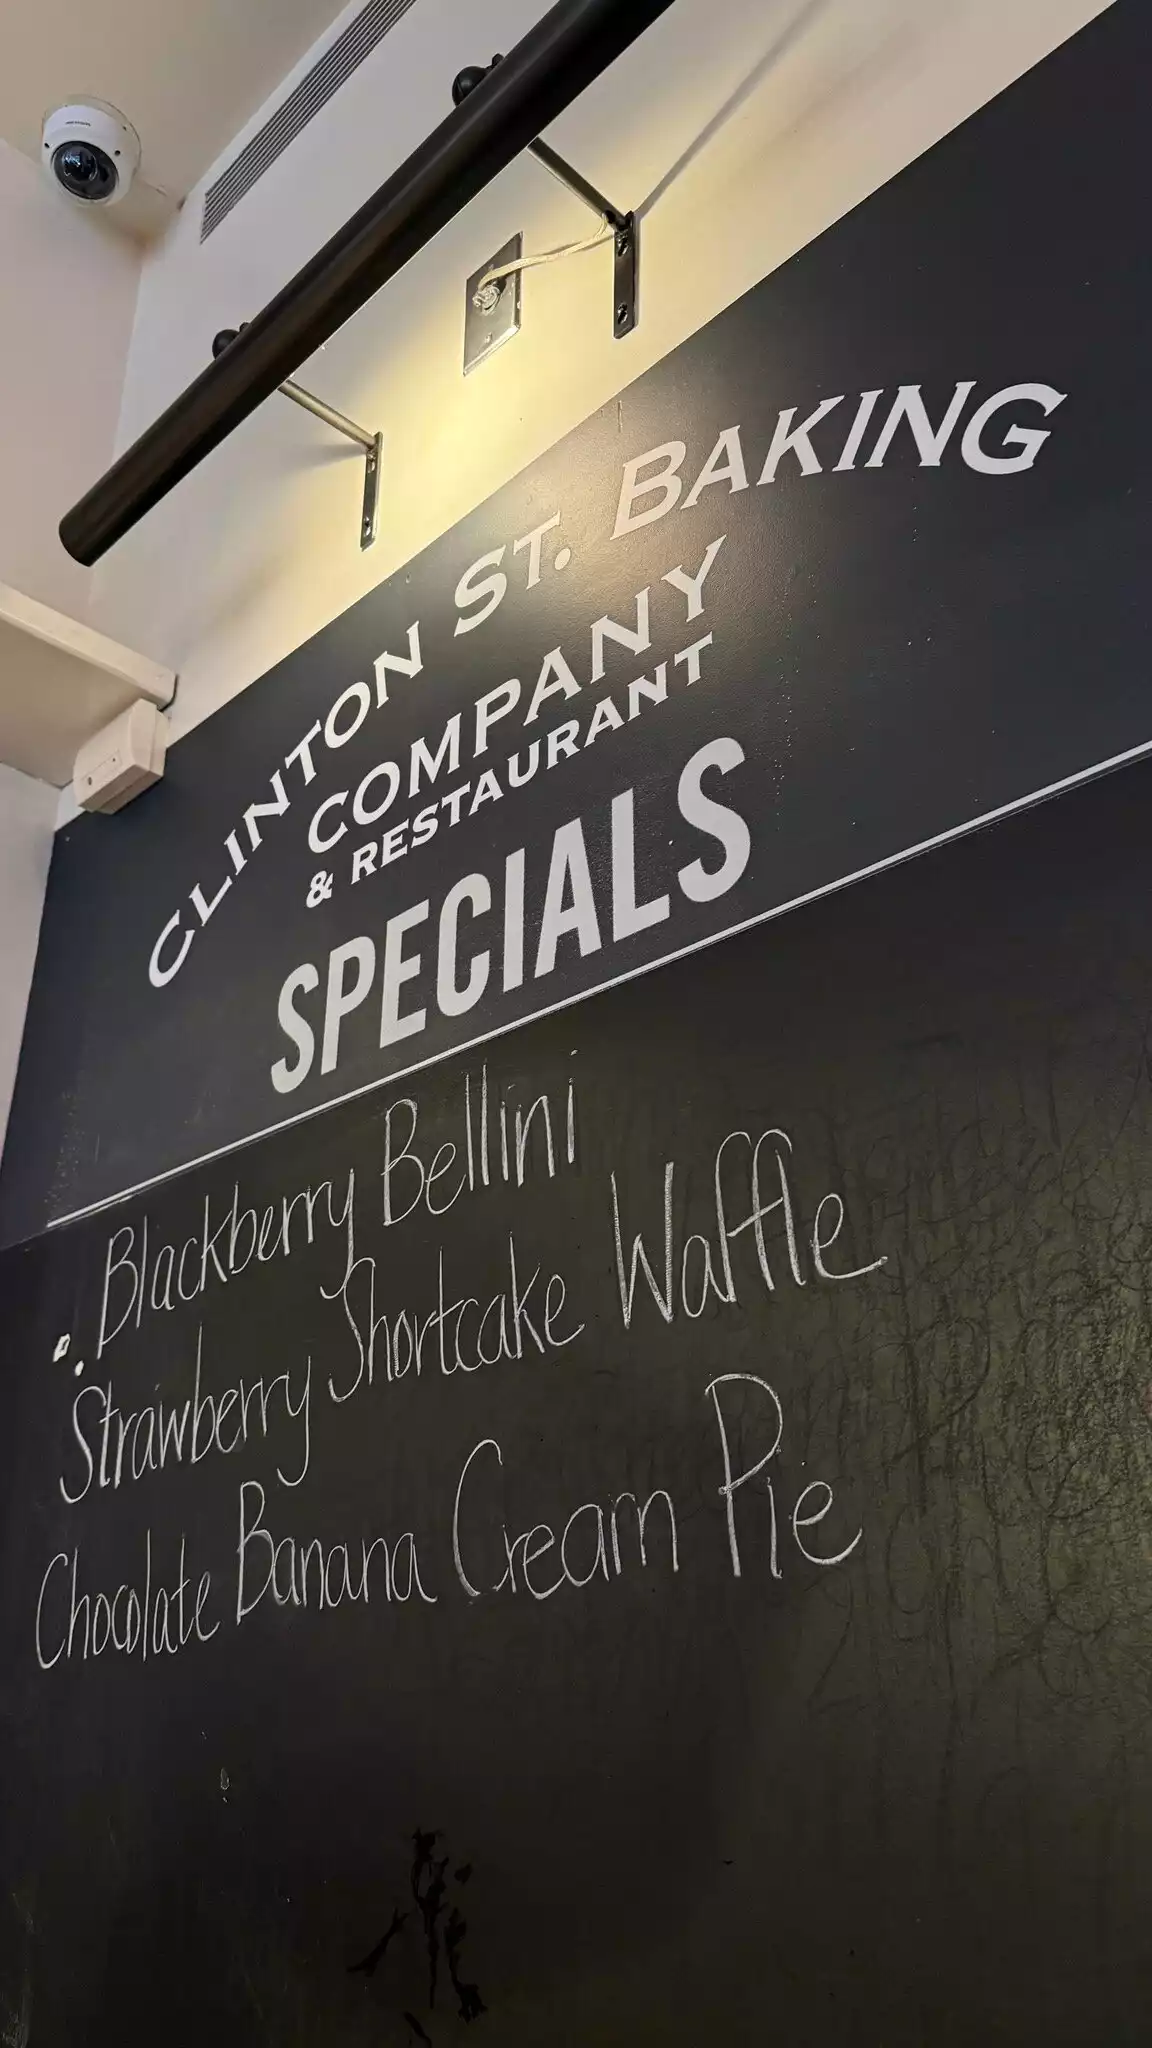 CLINTON ST. BAKING
COMPANY
& RESTAURANT
SPECIALS
Blackberry Bellini
Strawberry Shortcake Waffle
Chocolate Banana Cream Pie